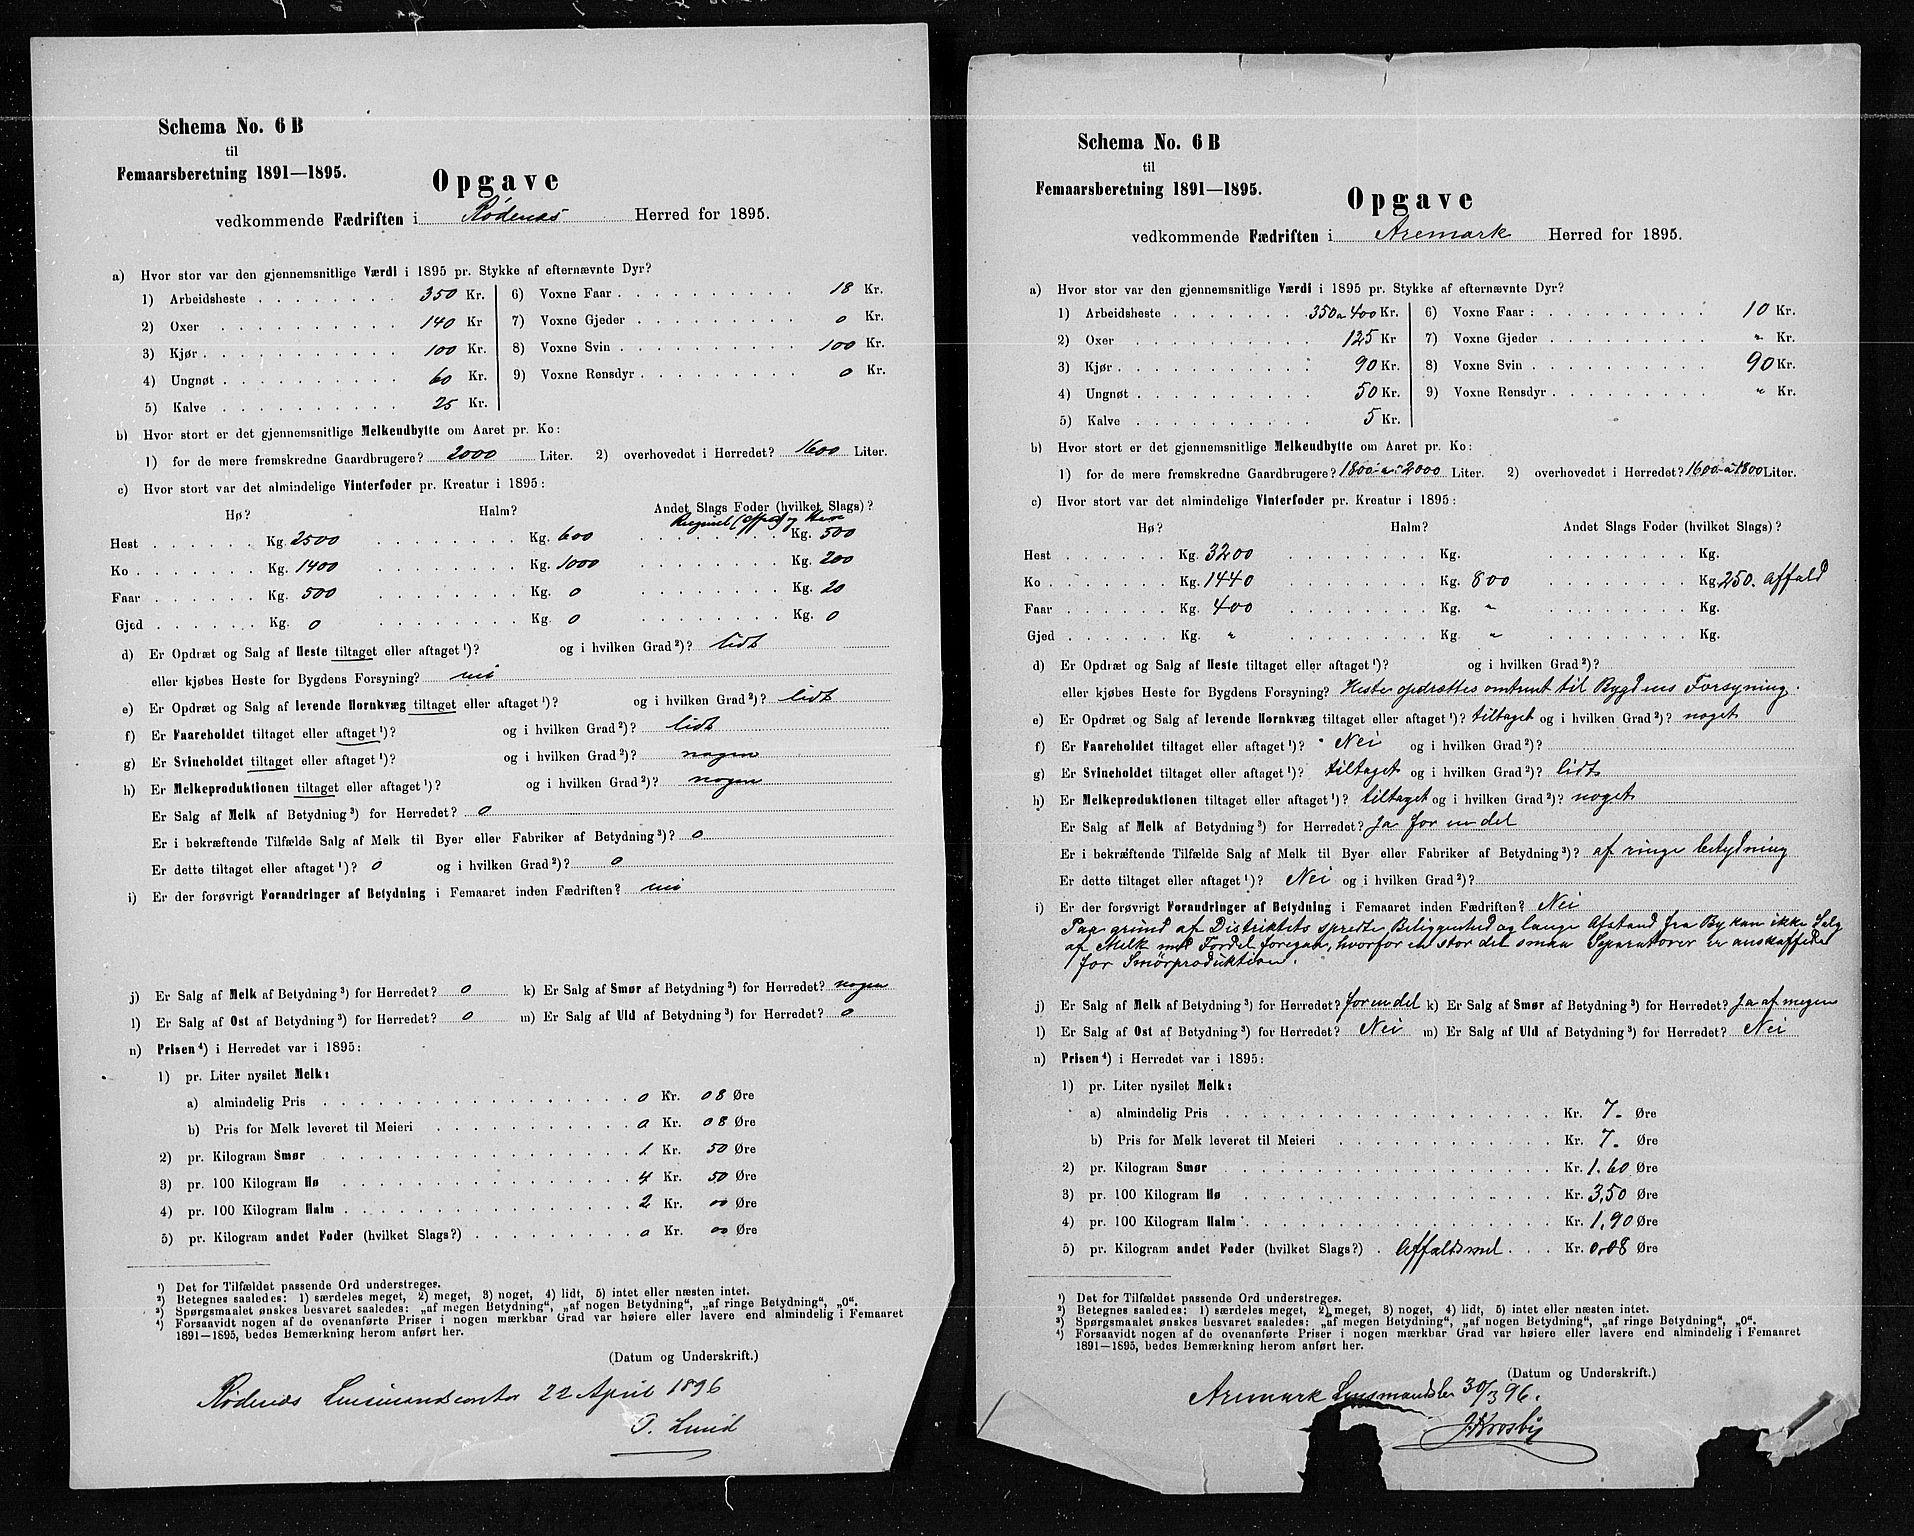 Schema No. 6 B
til
Femaarsberetning 1891—1895.
Opgave
vedkommende Fædriften i Rødenes Herred for 1895.
a) Hvor stor var den gjennemsnitlige Værdi i 1895 pr. Stykke af efternævnte Dyr?
1) Arbeidsheste 350 Kr. 6) Voxne Faar 18 Kr.
2) Oxer 140 Kr 7) Voxne Gjeder 0 Kr.
3) Kjør 100 Kr. 8) Voxne Svin 100 Kr.
4) Ungnøt 60 Kr. 9) Voxne Rensdyr 0 Kr.
5) Kalve 25 Kr.
b) Hvor stort er det gjennemsnitlige Melkeudbytte om Aaret pr. Ko:
1) for de mere fremskredne Gaardbrugere? 2000 Liter. 2) overhovedet i Herredet? 1600 Liter.
c) Hvor stort var det almindelige Vinterfoder pr. Kreatur i 1895:
Hø? Halm? Andet Slags Foder (hvilket Slags)?
og
Hest Kg. 2500 Kg. 600 Kg. 500
Ko Kg. 1400 Kg. 1000 Kg. 200
Faar Kg. 500 Kg. 0 Kg. 20
Gjed Kg. 0 Kg. 0 Kg. 0
d) Er Opdræt og Salg af Heste tiltaget eller aftaget ¹)? og i hvilken Grad ²)? lidt
eller kjøbes Heste for Bygdens Forsyning? nei
e) Er Opdræt og Salg af levende Hornkvæg tiltaget eller aftaget ¹)? og i hvilken Grad ²)? lidt
f) Er Faareholdet tiltaget eller aftaget ¹)? og i hvilken Grad ²)? lidt
g) Er Svineholdet tiltaget eller aftaget ¹)? og i hvilken Grad ²)? nogen
h) Er Melkeproduktionen tiltaget eller aftaget ¹)? og i hvilken Grad ²)? nogen
Er Salg af Melk af Betydning ³) for Herredet? 0
Er i bekræftende Tilfælde Salg af Melk til Byer eller Fabriker af Betydning ³)? 0
Er dette tiltaget eller aftaget ¹)? 0 og i hvilken Grad ²)? 0
i) Er der forøvrigt Forandringer af Betydning i Femaaret inden Fædriften? nei
j) Er Salg af Melk af Betydning ³) for Herredet? 0 k) Er Salg af Smør af Betydning ³) for Herredet? nogen
l) Er Salg af Ost af Betydning ³) for Herredet? 0 m) Er Salg af Uld af Betydning ³) for Herredet? 0
n) Prisen ⁴) i Herredet var i 1895:
1) pr. Liter nysilet Melk:
a) almindelig Pris 0 Kr. 08 Øre
b) Pris for Melk leveret til Meieri 0 Kr. 08 Øre
2) pr. Kilogram Smør 1 Kr. 50 Øre
3) pr. 100 Kilogram Hø 4 Kr. 50 Øre
4) pr. 100 Kilogram Halm 2 Kr. 00 Øre
5) pr. Kilogram andet Foder (hvilket Slags?) 0 Kr. 00 Øre
¹) Det for Tilfældet passende Ord understreges.
²) Betegnes saaledes: 1) særdeles meget, 2) meget, 3) noget, 4) lidt, 5) intet eller næsten intet.
³) Spørgsmaalet ønskes besvaret saaledes: „af megen Betydning“, „af nogen Betydning“, „af ringe Betydning“, „0“.
⁴) Forsaavidt nogen af de ovenanførte Priser i nogen mærkbar Grad var høiere eller lavere end almindelig i Femaaret
1891—1895, bedes Bemærkning herom anført her.
(Datum og Underskrift.)
Rødenes Lensmandscontor 22 April 1896
O. Lund
Schema No. 6 B
til
Femaarsberetning 1891—1895.
Opgave
vedkommende Fædriften i Aremark Herred for 1895.
a) Hvor stor var den gjennemsnitlige Værdi i 1895 pr. Stykke af efternævnte Dyr?
1) Arbeidsheste 350 a 400 Kr. 6) Voxne Faar : 10 Kr.
2) Oxer 125 Kr 7) Voxne Gjeder " Kr.
3) Kjør 90 Kr. 8) Voxne Svin 90 Kr.
4) Ungnøt 50 Kr. 9) Voxne Rensdyr " Kr.
5) Kalve 5 Kr.
b) Hvor stort er det gjennemsnitlige Melkeudbytte om Aaret pr. Ko:
1) for de mere fremskredne Gaardbrugere? 1800 a 2000 Liter. 2) overhovedet i Herredet? 1600 a 1800 Liter.
c) Hvor stort var det almindelige Vinterfoder pr. Kreatur i 1895:
Hø? Halm? Andet Slags Foder (hvilket Slags)?
Hest Kg. 3200 Kg. Kg.
Ko Kg. 1440 Kg. 800 Kg. 250. Affald
Faar Kg. 400 Kg. " Kg.
Gjed Kg. " Kg. " Kg.
d) Er Opdræt og Salg af Heste tiltaget eller aftaget ¹)? og i hvilken Grad ²)?
eller kjøbes Heste for Bygdens Forsyning? Heste opdrættes omtrent til Bygdens Forsyning.
e) Er Opdræt og Salg af levende Hornkvæg tiltaget eller aftaget ¹)? tiltaget og i hvilken Grad ²)? noget
f) Er Faareholdet tiltaget eller aftaget ¹)? Nei og i hvilken Grad ²)?
g) Er Svineholdet tiltaget eller aftaget ¹)? tiltaget og i hvilken Grad ²)? lidt
h) Er Melkeproduktionen tiltaget eller aftaget ¹)? tiltaget og i hvilken Grad ²)? noget
Er Salg af Melk af Betydning ³) for Herredet? Ja for en del
Er i bekræftende Tilfælde Salg af Melk til Byer eller Fabriker af Betydning ³)? af ringe betydning
Er dette tiltaget eller aftaget ¹)? Nei og i hvilken Grad ²)?
i) Er der forøvrigt Forandringer af Betydning i Femaaret inden Fædriften? Nei
Paa grund af Distriktets spredte Beliggenhed og lange Afstand fra By kan ikke Salg
af Melk med Fordel foregaa, hvorfor en stor del smaa Separatorer er anskaffede
for Smørproduktion.
j) Er Salg af Melk af Betydning ³) for Herredet? for en del k) Er Salg af Smør af Betydning ³) for Herredet? Ja af megen
l) Er Salg af Ost af Betydning ³) for Herredet? Nei m) Er Salg af Uld af Betydning ³) for Herredet? Nei
n) Prisen ⁴) i Herredet var i 1895:
1) pr. Liter nysilet Melk:
a) almindelig Pris Kr. 7. Øre
b) Pris for Melk leveret til Meieri Kr. 7. Øre
2) pr. Kilogram Smør Kr. 1.60 Øre
3) pr. 100 Kilogram Hø Kr. 3,50 Øre
4) pr. 100 Kilogram Halm Kr. 1,90 Øre
5) pr. Kilogram andet Foder (hvilket Slags?) Affaldsmel Kr. 0.08 Øre
¹) Det for Tilfældet passende Ord understreges.
²) Betegnes saaledes: 1) særdeles meget, 2) meget, 3) noget, 4) lidt, 5) intet eller næsten intet.
³) Spørgsmaalet ønskes besvaret saaledes: „af megen Betydning“, „af nogen Betydning“, „af ringe Betydning“, „0“.
⁴) Forsaavidt nogen af de ovenanførte Priser i nogen mærkbar Grad var høiere eller lavere end almindelig i Femaaret
1891—1895, bedes Bemærkning herom anført her.
(Datum og Underskrift.)
Aremark 30/3 96.
J. Krosby